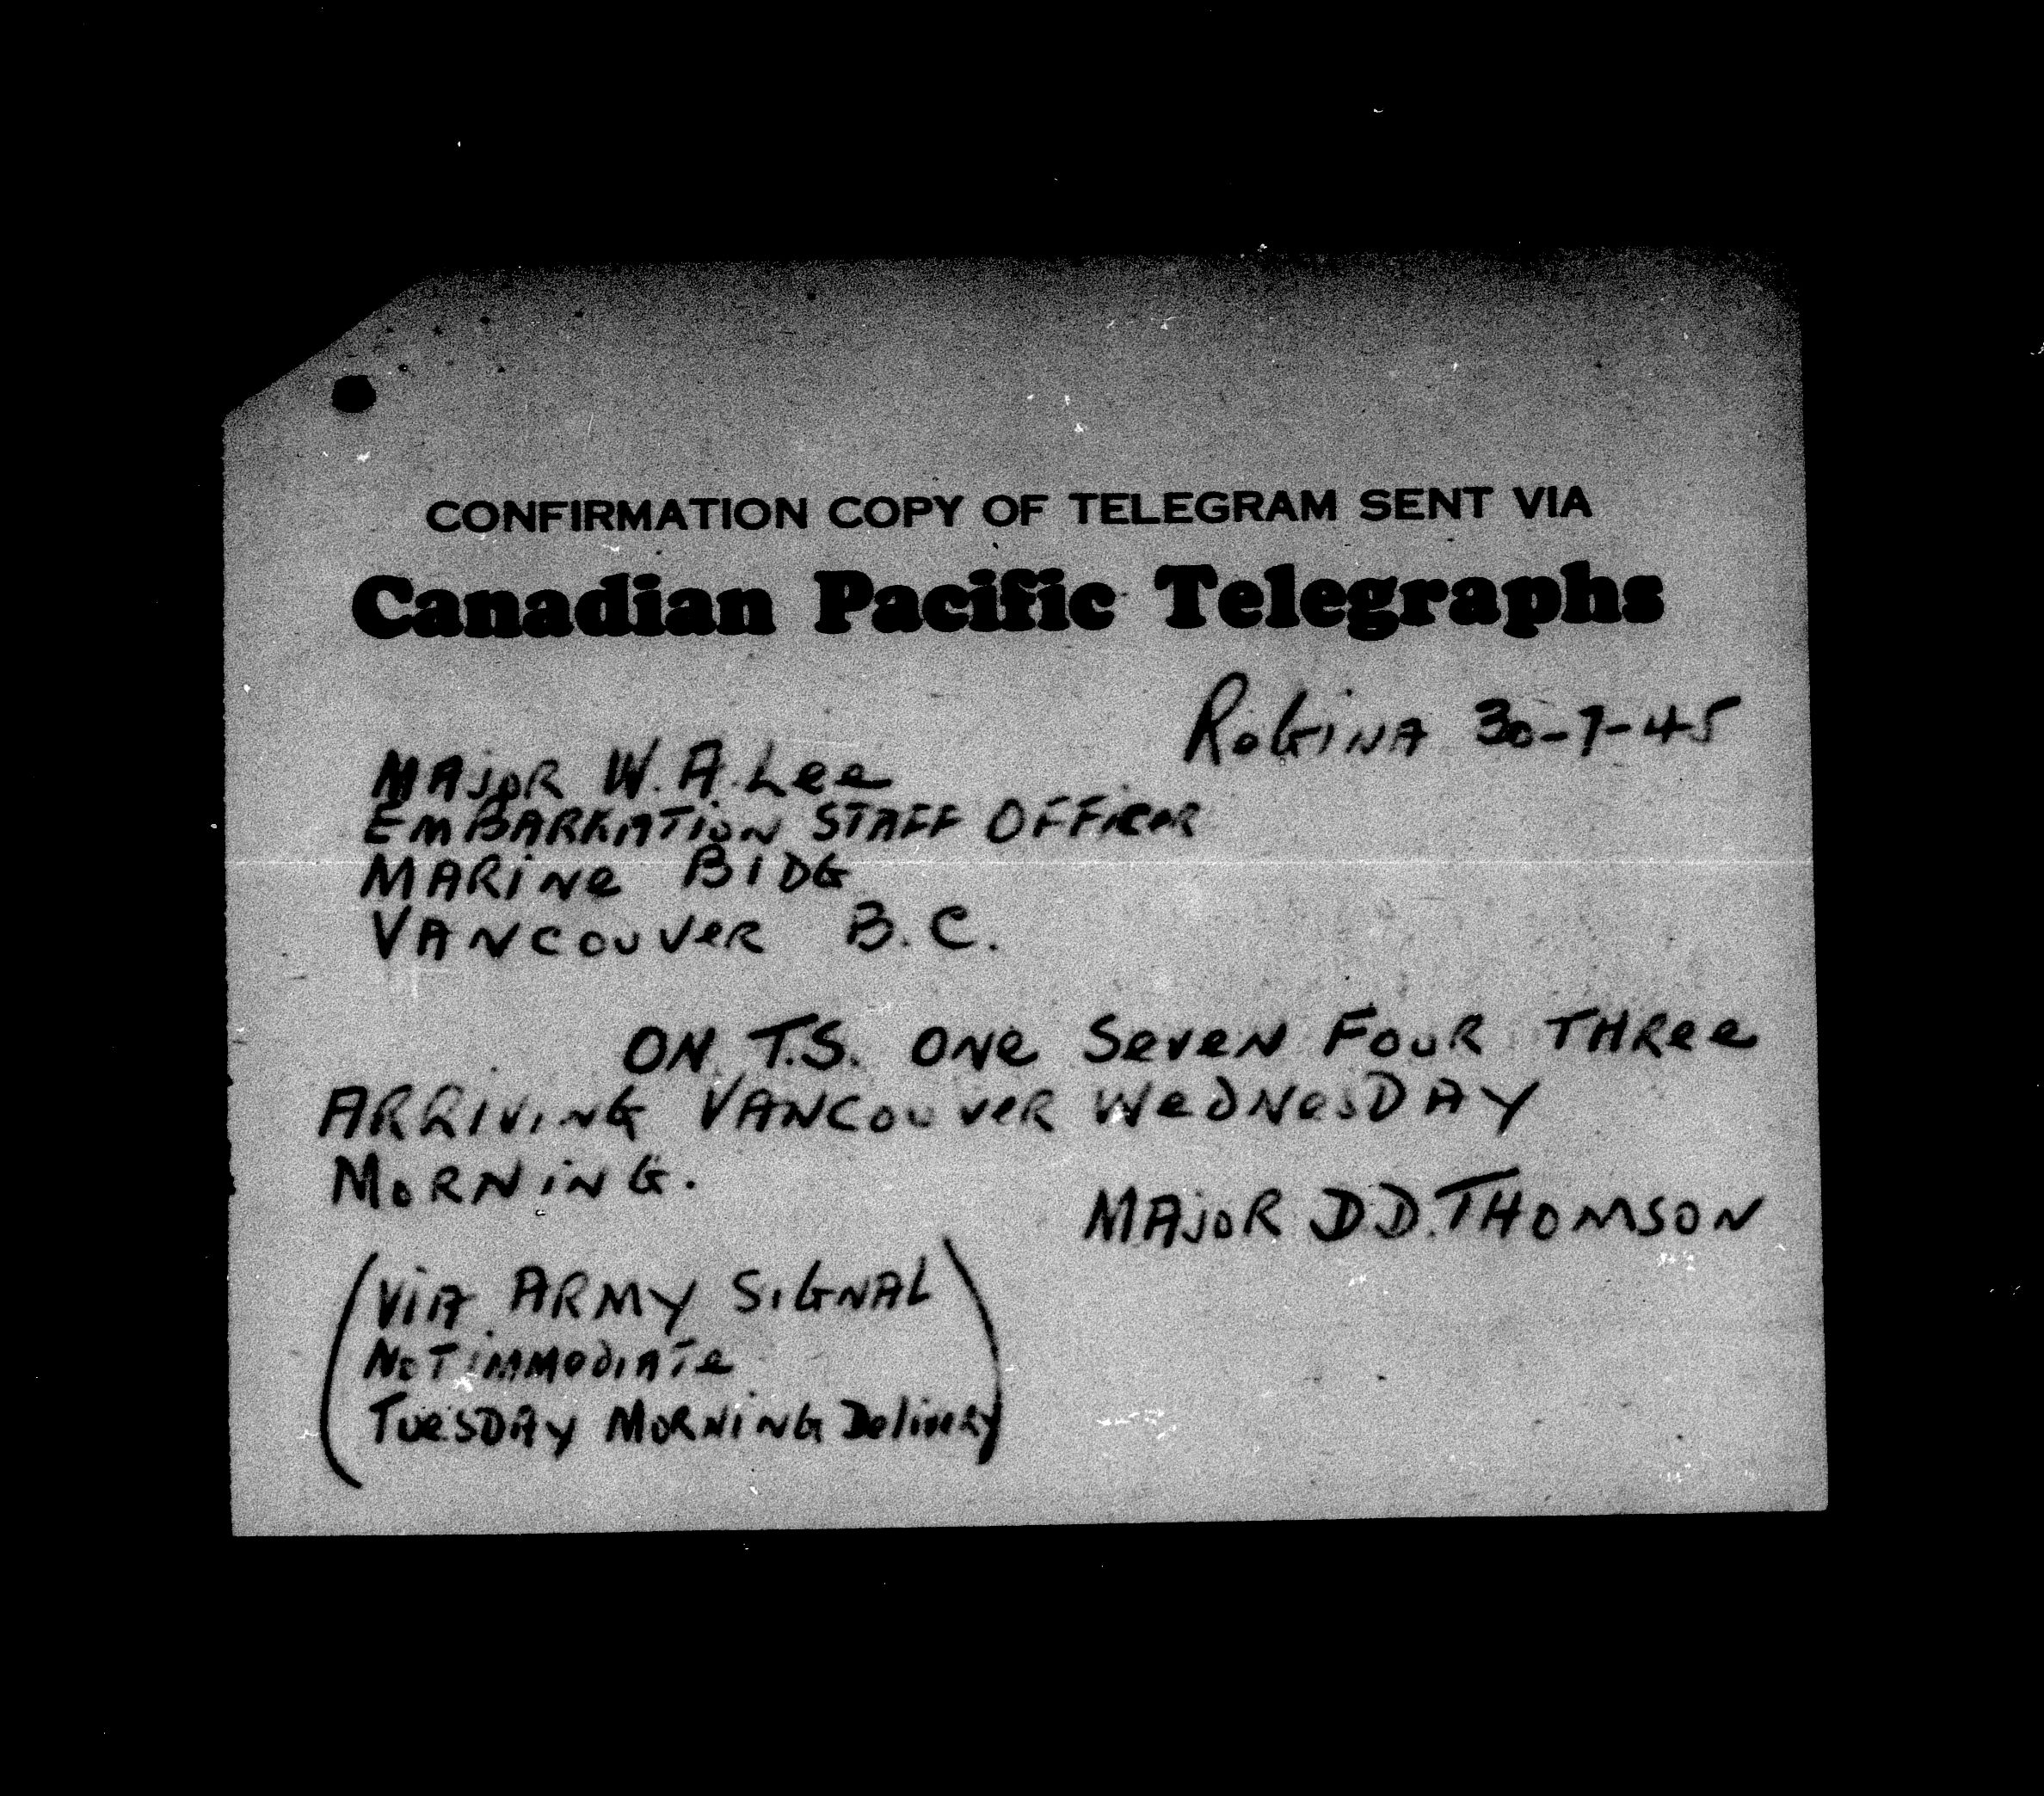 CONFIRMATION COPY OF TELEGRAM SENT VIA
Canadian Pacific Telegraphs
ReGiNA 30-7-45
MAjoR W. A. Lee
EMBARKATION STAFF OFFiceR
MARiNe BlDG
VANCOUVeR B.C.
ON T.S. ONe SeveN FouR THRee
ARRiViNG VANCOUVeR WeDNesDAY
MoRNiNG.
MAjoR D.D. THOMSON
(ViA ARMY SiGNAL
NoT iMMeDiATe
TUeSDAY MoRNiNG DeliveRy)